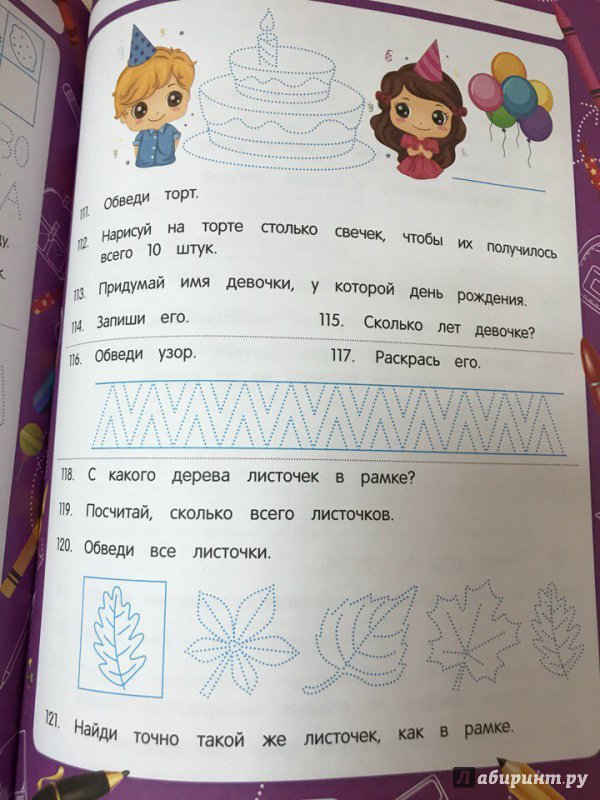 111. Обведи торт.
112. Нарисуй на торте столько свечек, чтобы их получилось
всего 10 штук.
113. Придумай имя девочки, у которой день рождения.
114. Запиши его. 115. Сколько лет девочке?
116. Обведи узор. 117. Раскрась его.
118. С какого дерева листочек в рамке?
119. Посчитай, сколько всего листочков.
120. Обведи все листочки.
121. Найди точно такой же листочек, как в рамке.
Лабиринт.ру